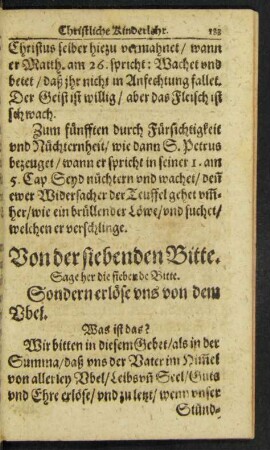 Christliche Kinderlehr. 183
Christus selber hiezu vermahnet / wann
er Matth. am 26. spricht: Wachet vnd
betet / daß jhr nicht in Anfechtung fallet.
Der Geist ist willig / aber das Fleisch ist
schwach.
Zum fünfften durch Fürsichtigkeit
vnd Nüchternheit / wie dann S. Petrus
bezeuget / wann er spricht in seiner 1. am
5. Cap Seyd nüchtern vnd wachet / deñ
ewer Widersacher der Teuffel gehet vm̃-
her / wie ein brüllender Löwe / vnd suchet /
welchen er verschlinge.
Von der siebenden Bitte.
Sage her die siebende Bitte.
Sondern erlöse vns von dem
Vbel.
Was ist das?
Wir bitten in diesem Gebet / als in der
Summa / daß vns der Vater im Him̃el
von allerley Vbel / Leibs vñ Seel / Guts
vnd Ehre erlöse / vnd zu letzt / wenn vnser
Stünd-